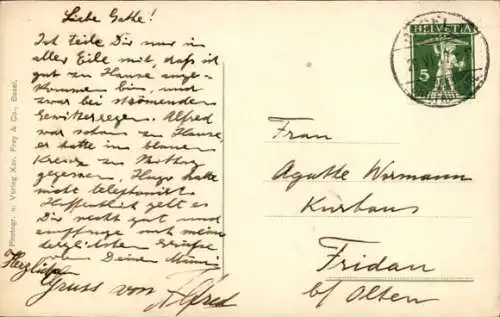 Liebe Gatte!
Ich teile Dir nur in
aller Eile mit, daß ich
gut zu Hause ange-
kommen bin, und
zwar bei strömendem
Gewitterregen. Alfred
war schon zu Hause,
er hatte im blauen
Kreuz zu Mittag
gegessen, Hugo hatte
nicht telephoniert.
Hoffentlich geht es
Dir recht gut und
empfange noch meine
herzlichsten Grüsse
von Deine Mimi
Herzliche
Gruss von Alfred
Photogr. u. Verlag Xav. Frey & Co., Basel.
HELVETIA
5
Frau
Agathe Wormann
Kurhaus
Fridau
b/ Olten